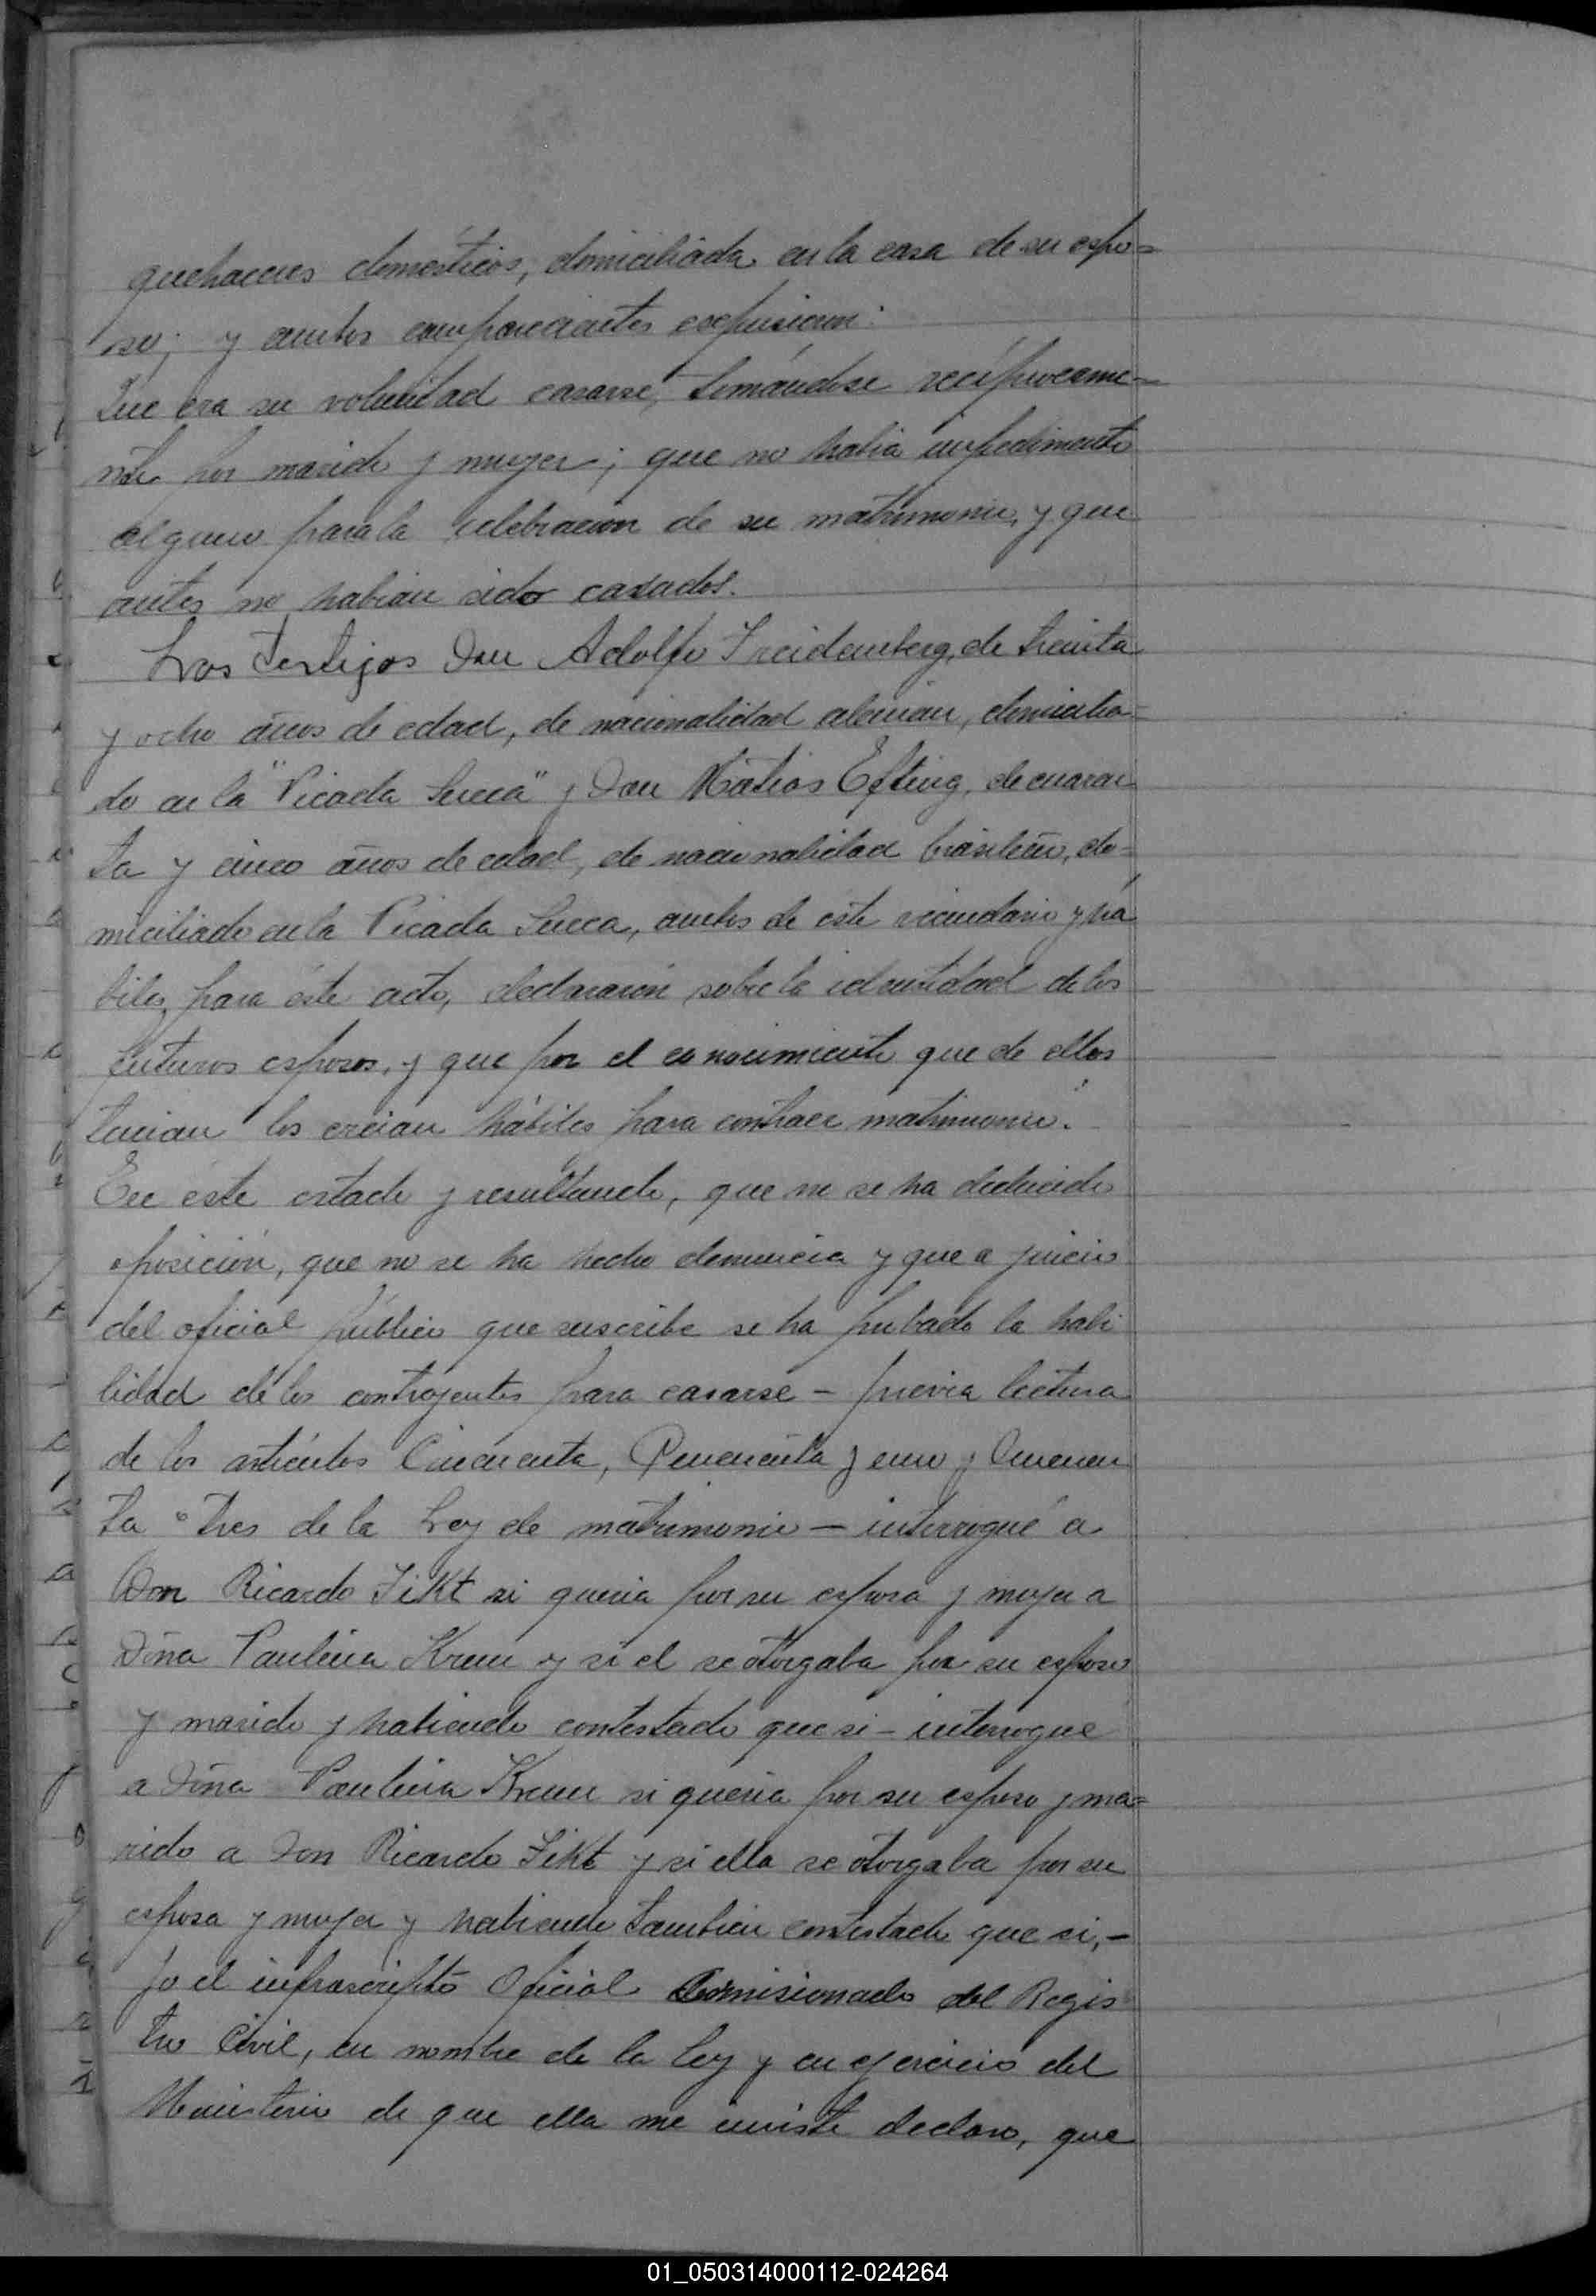 quehaceres domésticos, domiciliada en la casa de su espo=
so; y ambos comparecientes expusieron:
Que era su voluntad casarse, tomándose recíprocame=
nte por marido y mujer; que no habia impedimento
alguno para la celebración de su matrimonio, y que
antes no habian sido casados.
Los Testigos Don Adolfo Freidemberg, de treinta
y ocho años de edad, de nacionalidad aleman, domicilia-
do en la "Picada Sueca" y Don Matias Efting, de cuaren
ta y cinco años de edad, de nacionalidad brasileño, do-
miciliado en la Picada Sueca, ambos de este vecindario y há
biles, para éste acto, declararón sobre la identidad de los
futuros esposos, y que por el conocimiento que de ellos
tenian los creian hábiles para contraer matrimonio.
En éste estado y resultando, que no se ha deducido
oposición, que no se ha hecho denuncia y que a juicio
del oficial público que suscribe se ha probado la habi
lidad de los contrayentes para casarse - previa lectura
de los artículos Cincuenta, Cincuenta y uno y Cincuen
ta y tres de la Ley de matrimonio - interrogué a
Don Ricardo Fikt si queria por su esposa y mujer a
Doña Paulina Krum y si el se otorgaba por su esposo
y marido y habiendo contestado que si - interrogué
a Doña Paulina Krum si queria por su esposo y ma=
rido a Don Ricardo Fikt y si ella se otorgaba por su
esposa y mujer y habiendo tambien contestado que si, -
yo el infrascripto Oficial Comisionado del Regis
tro Civil, en nombre de la ley y en ejercicio del
Ministerio de que ella me inviste declaro, que
01_050314000112-024264